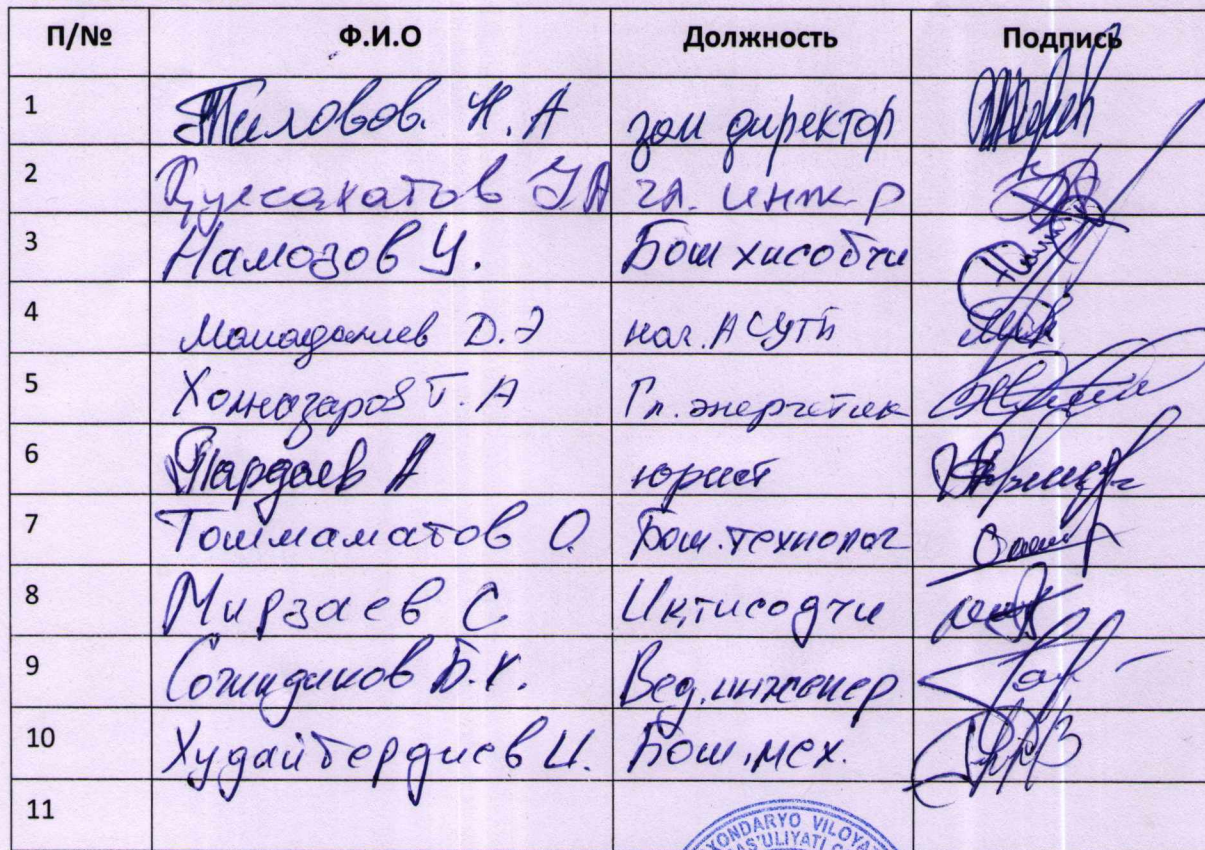 П/№ Ф.И.О Должность Подпись
1 Тиловов. Н. А зам директор
2 Қулсахатов ЗА гл. инж-р
3 Намозов У. Бош хисобчи
4 Мамадалиев Д.Э нач. АСУТП
5 Холназаров Т. А Гл. энергетик
6 Пардаев А юрист
7 Тошмаматов О. Бош. технолог
8 Мирзаев С Иқтисодчи
9 Сожидиков Б.Х. Вед. инженер
10 Худайбердиев И. Бош. мех.
11
XONDARYO VILOYAT
AS'ULIYATI C